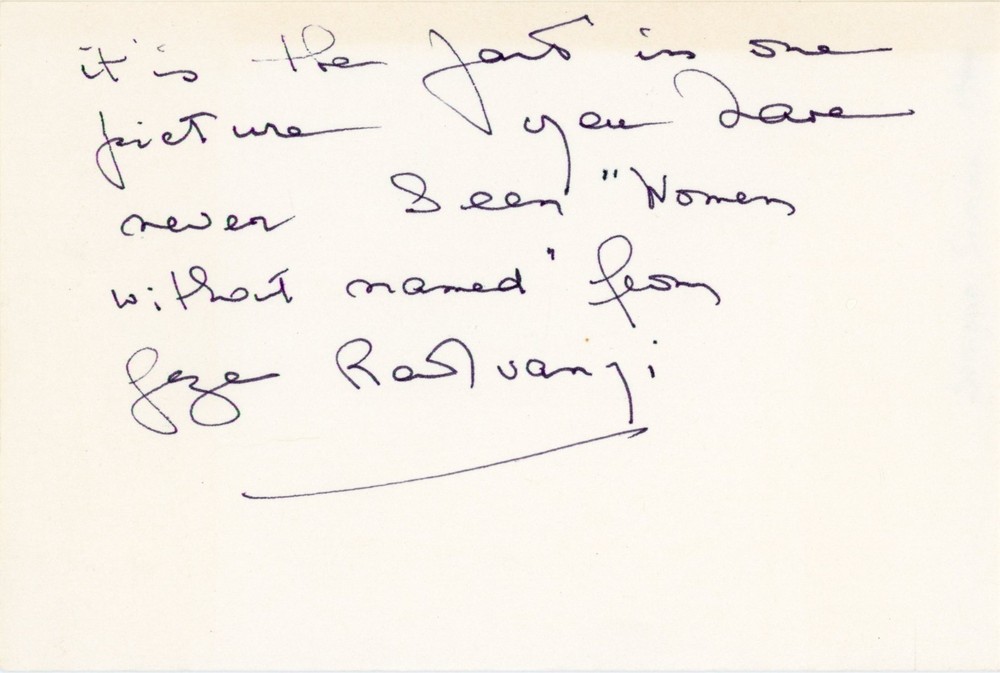 it is the part in one
picture you have
never seen "Women
without named" from
Geza Radvanyi